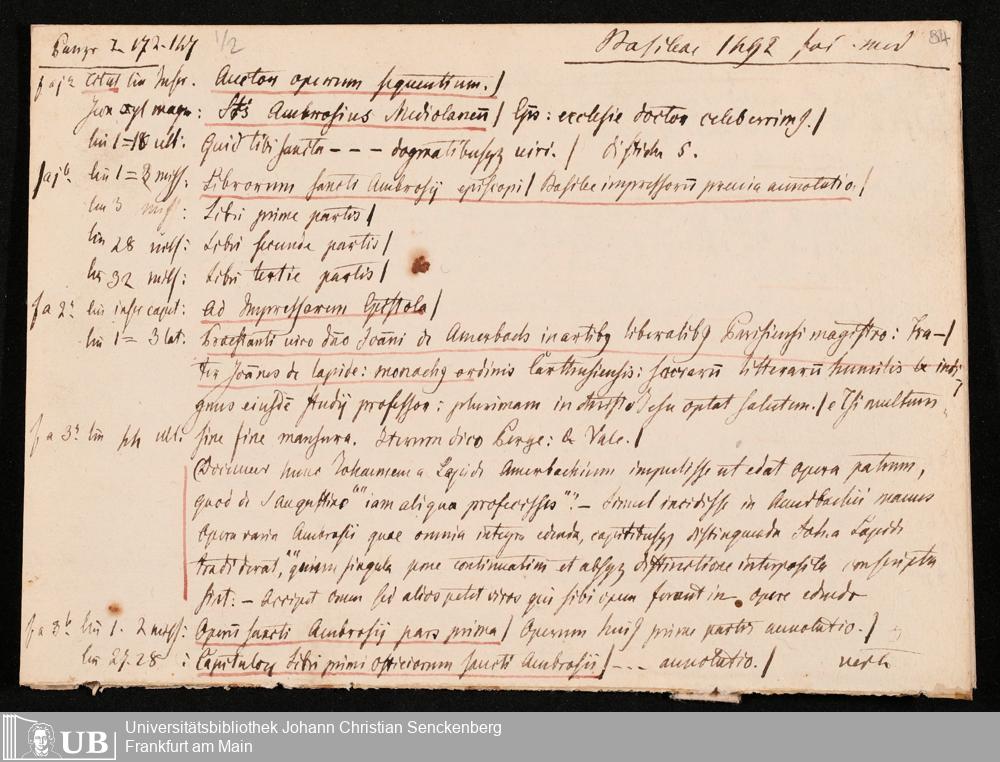 Panzr I 172. 147 1/2 Basileae 1492 fol. med 84
f a j a lin infer. Auctor operum sequentium. /
magn: Stüs Ambrosius Mediolaneñ / Eps: ecclesie doctor celeberrim9. /
lin 1=18 ult: Quid tibi sancta - - - dogmatibusqz viri. / disticha 5.
f a j b. lin 1=2 miss: Librorum sancti Ambrosij episcopi / Basilee impressorũ previa annotatio. /
lin 3 miss: Libri prime partis /
lin 28 miss: Libri secunde partis /
lin 32 miss: Libri tertie partis /
f a 2 a lin infer caput: Ad Impressorum Epistola /
lin 1= 3 lat: Praestanti viro dño Joãni de Amerbach inartib9 liberalib9 Parisiensi magistro: Fra- /
ter Joãnes de lapide: monach9 ordinis Carthusiensis: sacrarũ litterarũ humilis et indi
gnus eiusdẽ studij professor: plurimam in christo Jesu optat salutem. / Tsi multum
f a 3 a lin ult: sine fine mansura. Iterum dico Perge: & Vale. /
Docemur hunc Johannem a Lapide Amerbachium impulisse ut edat opera patrum,
quod de S Augustino "iam aliqua profecisses". - Simul incidisse in Amerbachii manus
Opera varia Ambrosii quae omnia integra edenda, capitibusqz distinguenda Joh. a Lapide
tradiderat, "quum singula pene continuatim et absqz distinctione interposita conscripta
sint: - sed alios petit viros qui sibi opem ferant in opere edendo
f a 3 b. lin 1. 2 miss: Operũ sancti Ambrosij pars prima / Operum hui9 prime partis annotatio. /
lin 27. 28 : Capitulorũ Libri primi officiorum sancti Ambrosii / - - - annotatio. / verte
UB Universitätsbibliothek Johann Christian Senckenberg
Frankfurt am Main